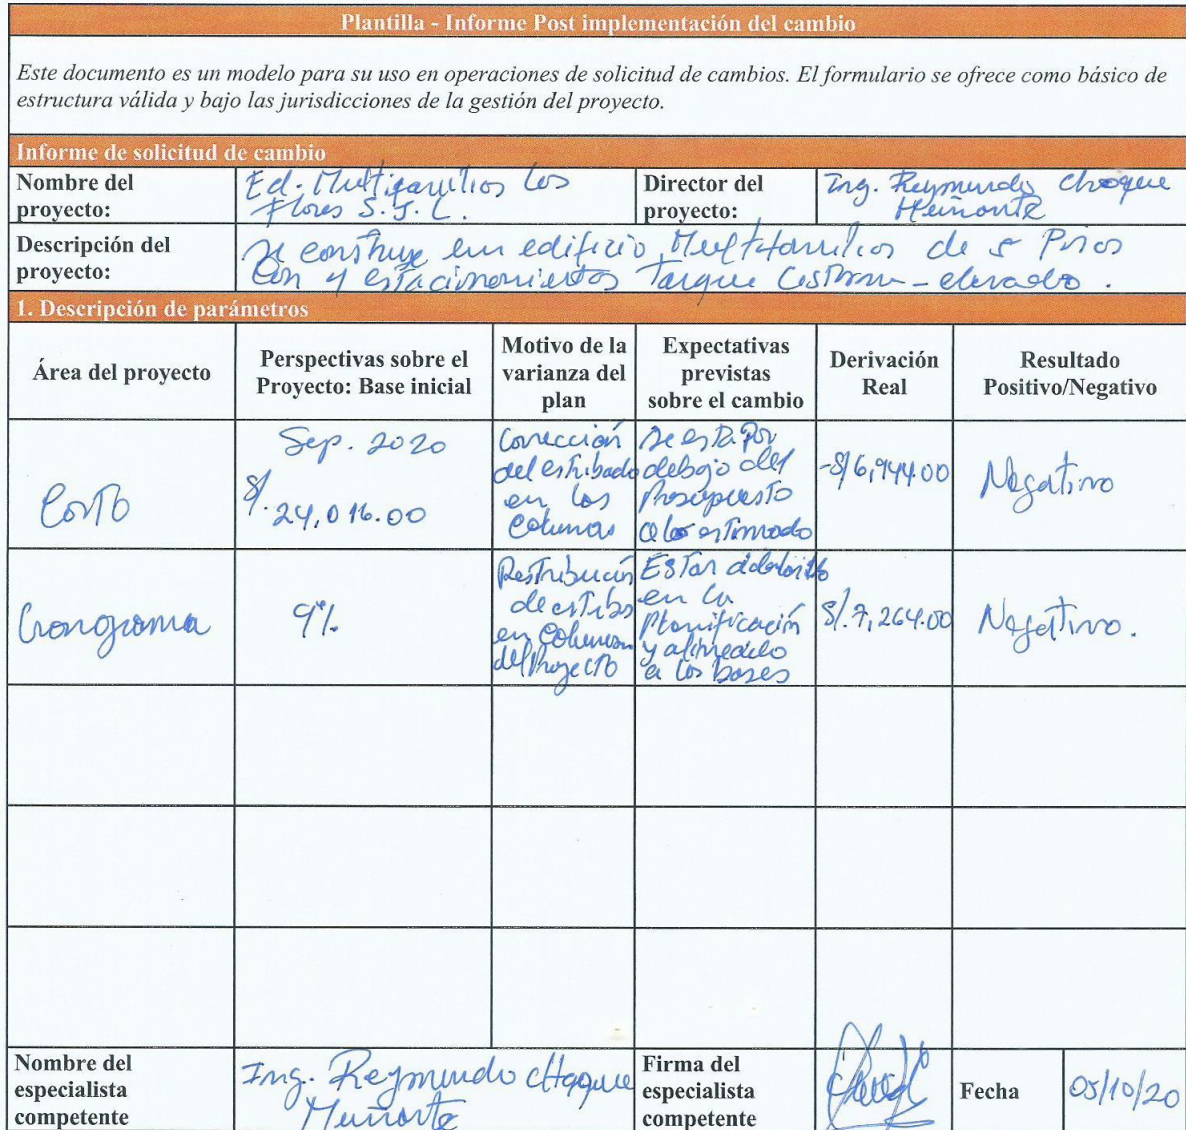 Plantilla - Informe Post implementación del cambio
Este documento es un modelo para su uso en operaciones de solicitud de cambios. El formulario se ofrece como básico de
estructura válida y bajo las jurisdicciones de la gestión del proyecto.
Informe de solicitud de cambio
Nombre del
proyecto:
Ed. Multifamilios Los
Flores S.J.L.
Director del
proyecto:
Ing. Reymundo Choque
Descripción del
proyecto:
Se construye un edificio Multifamilios de 5 Pisos
Con 4 estacionamientos Tanque Cisterna - elevado.
1. Descripción de parámetros
Área del proyecto
Perspectivas sobre el
Proyecto: Base inicial
Motivo de la
varianza del
plan
Expectativas
previstas
sobre el cambio
Derivación
Real
Resultado
Positivo/Negativo
Costo
Sep. 2020
S/. 24,016.00
Corrección
del estribado
en los
Columnas
Se esta por
debajo del
Presupuesto
a los estimado
-S/6,944.00
Negativo
Cronograma
9%
Restribución
de estribo
en Columnas
del Proyecto
Estar
en la
Planificación
y alineado
a los bases
S/.7,264.00
Negativo.
Nombre del
especialista
competente
Ing. Reymundo Choque
Firma del
especialista
competente
Fecha
05/10/20